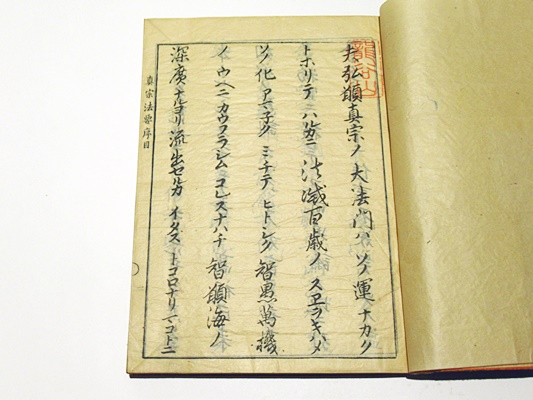 夫弘願真宗ノ大法門ハソノ運ナカク
トホリテハルカニ法滅百歳ノスヱヲキハメ
ソノ化アマ子クミチテヒトシク智愚萬機
ノウヘニカウフラシムコレスナハチ智願海ノ
深廣ナルヨリ流出セルカイタストコロナリマコトニ
真宗法要序目